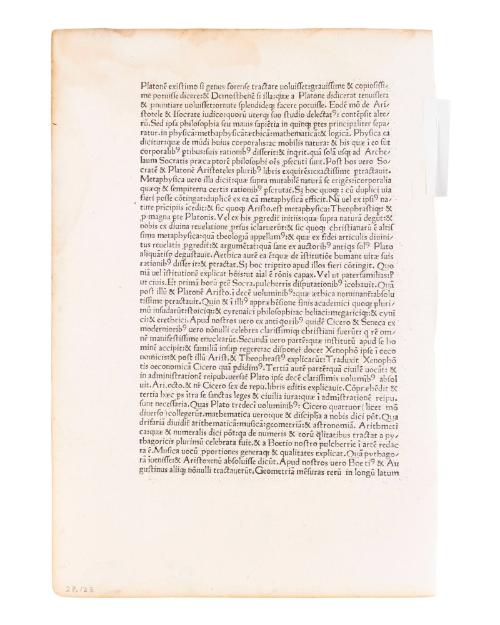 Platonē existimo si genus forense tractare voluisset: gravissime & copiosissi-
me potuisse dicere: & Demosthenē si illa: quæ a Platone didicerat tenuisset:
& pnuntiare voluisset: ornate splendideq; facere potuisse. Eodē mō de Ari-
stotele & Isocrate iudico: quorū uterq; suo studio delectatꝰ: contēpsit alte-
rū. Sed ipsa philosophia seu mavis sapiētia in quinq; ptes principaliter sepa-
ratur. in physicā: methaphysicā: ethicā: mathematicā: & logicā. Physica ea
dicitur: quæ de mūdi huius corporalis: ac mobilis natura: & his quæ
corporalibꝰ rationibꝰ disserit: & quā solā usq; ad Arche-
laum Socratis præceptorē philosophi oēs psecuti sunt. Post hos vero So-
cratē & Platonē Aristoteles pluribꝰ libris exquirēs: exactissime ptractavit.
Metaphysica vero illa dicit: quæ supra mutabilē naturā se erigēs: icorporalia
quæq; & sempiterna certis rationibꝰ pscrutat. Et hoc quoq; cū duplici via
fieri posse cōtingat: duplicē ex ea metaphysica efficit. Nā vel ex ipsꝰ na-
ture pricipiis & sic quoq; Aristo. est metaphysica: Theophrastiq; &
p magna pte Platonis. Vel ex his pgredit initiis: quæ supra naturā
nobis ex divina revelatione & sic quoq; christianarū ē alti-
sima metaphysica: quā theologiā appellamꝰ: & quæ ex fidei articulis divini-
tus revelatis pgredit: & argumētat: quā sane ex auctoribꝰ antiqs solꝰ Plato
aliquātisp degustavit. Aethica autē ea est: quæ de istitutiōe humane vitæ suis
rationibꝰ disserit: & ptractat. Et hoc triptito apud illos fieri cōtingit. Quo
nā vel istitutionē explicat hoīs: ut aīal ē rōnis capax. Vel ut paterfamilias:
ut civis. Et primā horā ptē Socra. pulcherris disputationibꝰ icobavit. Quā
post illū & Platonē Aristo. i decē voluminibꝰ: quæ æthica nominant: absolu
tissime ptractavit. Quin & i illꝰ apprehēsione finis academici quoq; pluri-
mū insudarūt: stoici: & cyrenaici philosophi: ac heliaci: megarici: & cyni
ci: & erethrici. Apud nostros vero ex antiqoribꝰ quidē Cicero & Seneca ex
modernioribꝰ vero nōnulli celebres clarissimiq; christiani fuerūt: q rē om-
nē manifestissime enuclearūt. Secunda vero partē: quæ institutū apud se ho
minē accipiēs: familiā insup regere: ac disponere docet Xenophō ipse i oeco
nomicis: & post illū Arist. & Theophrastꝰ explicarūt. Traduxit Xenophō
tis oeconomicā Cicero quā pdidimꝰ. Tertiā autē partē: quā civilē vocāt: &
in administratione reipub. versat: Plato ipse decē clarissimis volumībꝰ absol
uit. Ari. octo. & nī Cicero sex de repu. libris editis explicavit. Cōpræhēdit &
tertia hæc ps itra se sanctas leges & civilia iura: quæ i admistratiōe reipu.
sunt necessaria. Quas Plato tredecī voluminibꝰ: Cicero quattuor (licet mō
diverso) collegerūt. mathematica vero: quæ & disciplīa a nobis dici pōt. Qua
drifariā dividit: arithmetica: musicā: geometriā: & astronomiā. Arithmeti
ca: quæ & numeralis dici pōt: q̄a de numeris & eorū qlitatibus tractat a py-
thagoricis plurimū celebrata fuit. & a Boetio nostro pulcherrie i artē redac
ta ē. Musica vocū pportiones generaq; & qualitates explicat. Quā pythago-
rā ivenisse: & Aristoxenū absolvisse dicūt. Apud nostros vero Boetiꝰ & Au
gustinus aliiq; nōnulli tractaverūt. Geometria mēsuras rerū in longū latum